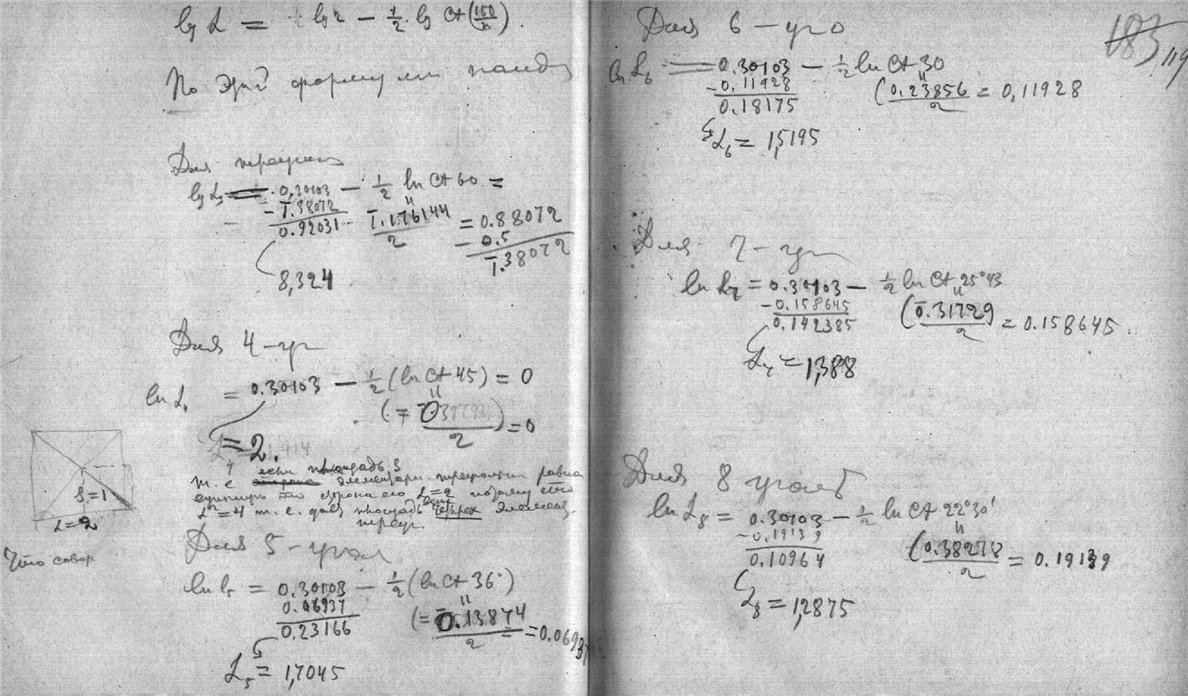 lg L = ½ lg 2 − ½ lg Ct (180/n).
По этой формуле
Для
lg L₃ = 0.30103 − ½ ln Ct 60 =
− 1̅.38072
0.92031
1̅.176144 / 2 = 0.88072
− 0.5
1̅.38072
8,324
Для 4-уг
ln L₄ = 0.30103 − ½ (ln Ct 45) = 0
(= 0 / 2) = 0
L₄ = 2.
если площадь S
т. е. элементарн. равна
единице то сторона его L=2 поэтому его
L² = 4 т. е. площадь четырех
S=1
L=2
Что
Для 5-угол
ln L₅ = 0.30103 − ½ (ln Ct 36°)
0.06937
0.23166
(= 0.13874 / 2 = 0.0693
L₅ = 1,7045
183
119
Для 6-уго
ln L₆ = 0.30103 − ½ ln Ct 30
− 0.11928
0.18175
(0.23856 / 2 = 0,11928
L₆ = 1,5195
Для 7-уг
ln L₇ = 0.30103 − ½ ln Ct 25°43
− 0.158645
0.142385
(0.31729 / 2 = 0.158645
L₇ = 1,388
Для 8 угол
ln L₈ = 0.30103 − ½ ln Ct 22°30'
− 0.19139
0.10964
(0.38278 / 2 = 0.19139
L₈ = 1,2875